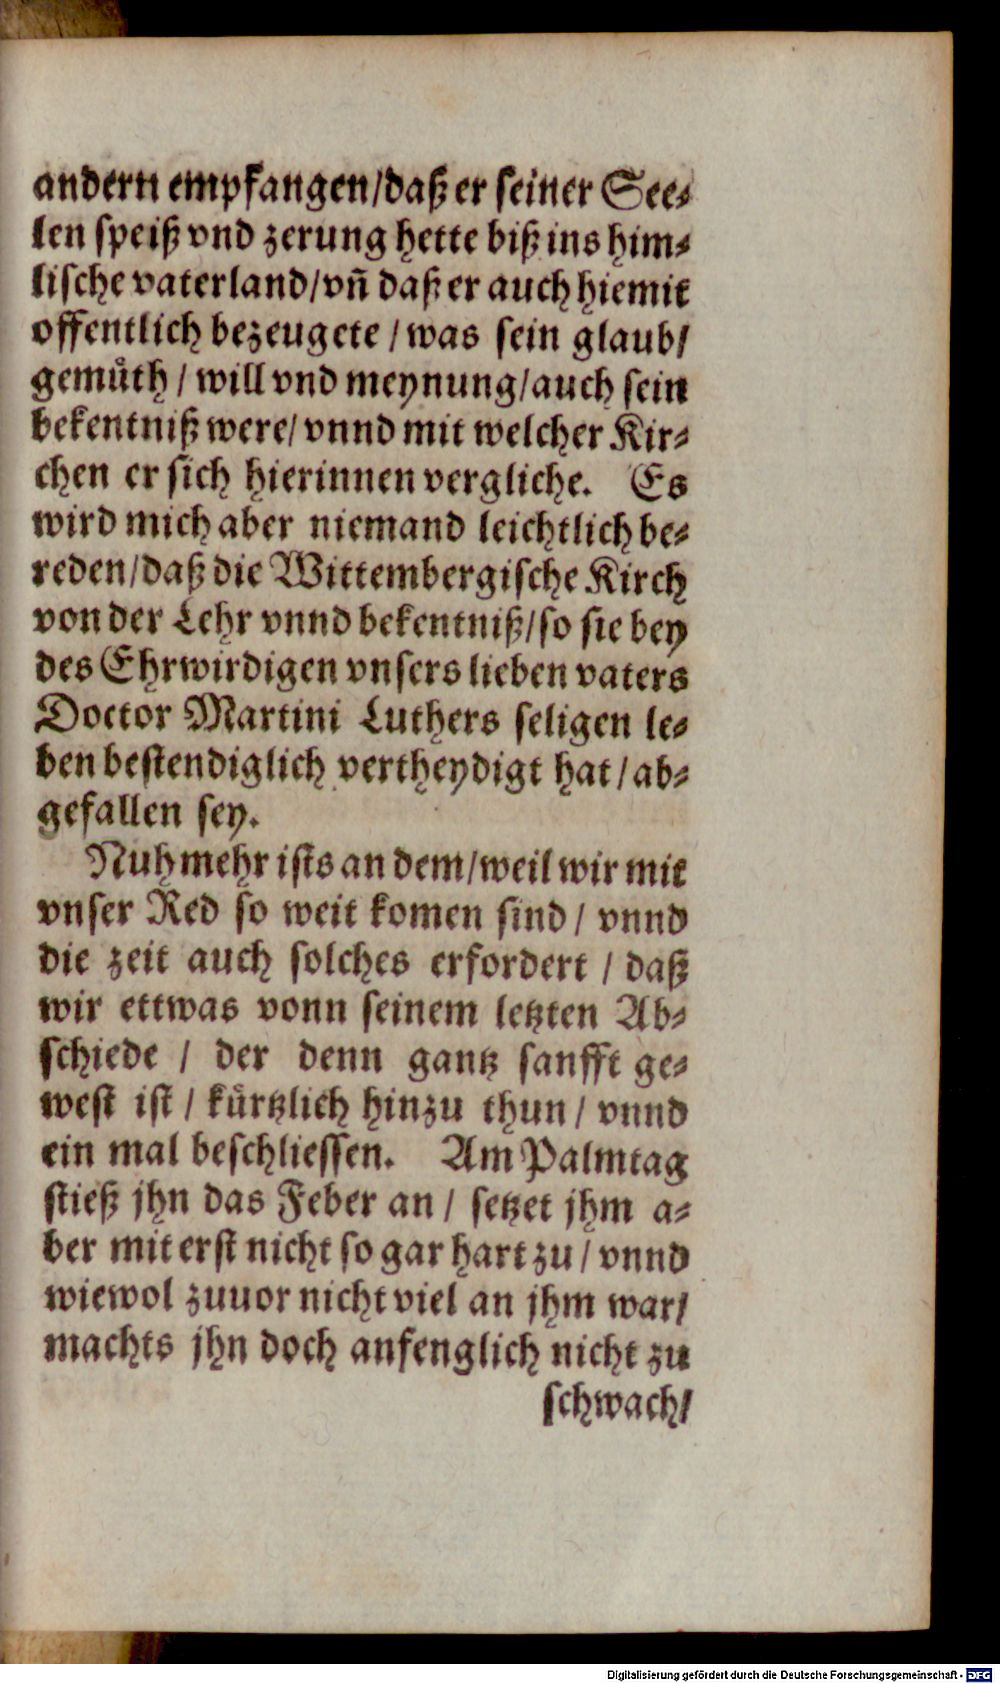 andern empfangen/daß er seiner See-
len speiß vnd zerung hette biß ins him-
lische vaterland/vñ daß er auch hiemit
offentlich bezeugete / was sein glaub/
gemuͤth / will vnd meynung/auch sein
bekentniß were/ vnnd mit welcher Kir-
chen er sich hierinnen vergliche. Es
wird mich aber niemand leichtlich be-
reden/daß die Wittembergische Kirch
von der Lehr vnnd bekentniß/so sie bey
des Ehrwirdigen vnsers lieben vaters
Doctor Martini Luthers seligen le-
ben bestendiglich vertheydigt hat/ ab-
gefallen sey.
Nuhmehr ists an dem/weil wir mit
vnser Red so weit komen sind / vnnd
die zeit auch solches erfordert / daß
wir ettwas vonn seinem letzten Ab-
schiede / der denn gantz sanfft ge-
west ist / kuͤrtzlich hinzu thun / vnnd
ein mal beschliessen. Am Palmtag
stieß jhn das Feber an / setzet jhm a-
ber mit erst nicht so gar hart zu / vnnd
wiewol zuuor nicht viel an jhm war/
machts jhn doch anfenglich nicht zu
schwach/
Digitalisierung gefördert durch die Deutsche Forschungsgemeinschaft - DFG